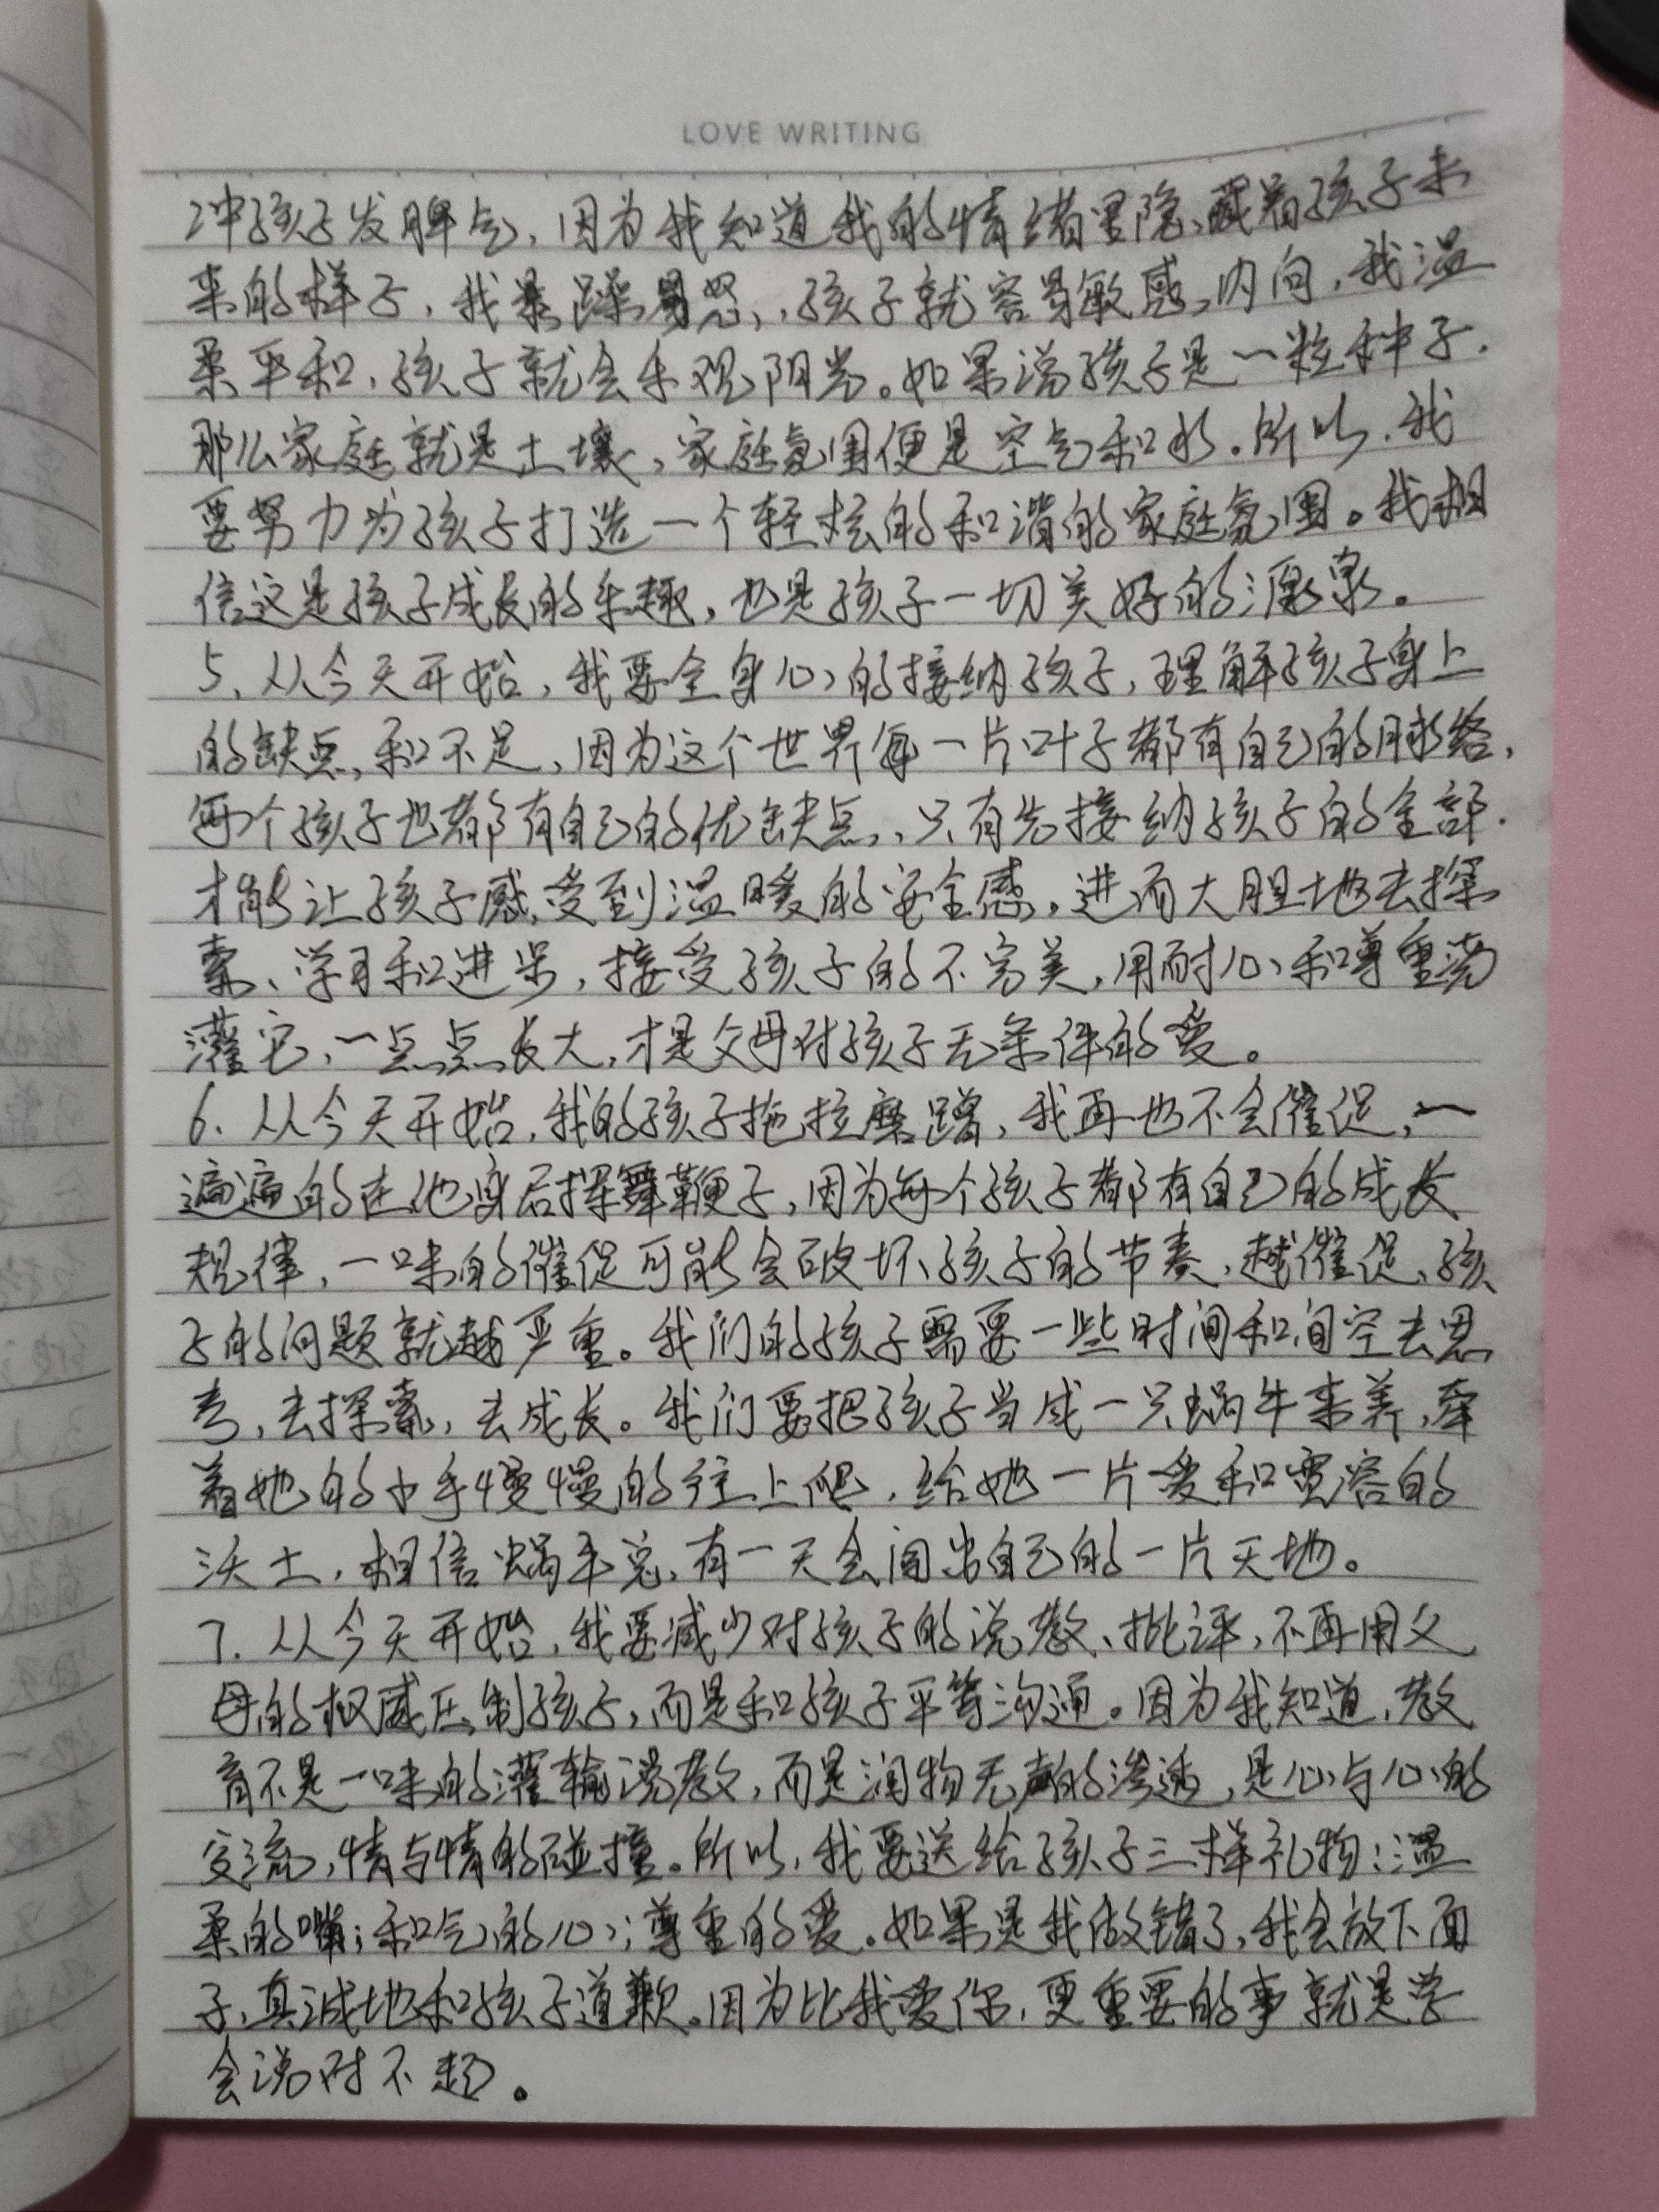 LOVE WRITING
冲孩子发脾气，因为我知道我的情绪里隐藏着孩子未
来的样子，我暴躁易怒，孩子就容易敏感，内向，我温
柔平和，孩子就会乐观阳光。如果说孩子是一粒种子.
那么家庭就是土壤，家庭氛围便是空气和水.所以.我
要努力为孩子打造一个轻松的和谐的家庭氛围。我相
信这是孩子成长的乐趣，也是孩子一切美好的源泉。
5、从今天开始，我要全身心的接纳孩子，理解孩子身上
的缺点和不足，因为这个世界每一片叶子都有自己的脉络，
每个孩子也都有自己的优缺点，只有先接纳孩子的全部.
才能让孩子感受到温暖的安全感，进而大胆地去探
索、学习和进步，接受孩子的不完美，用耐心和尊重浇
灌它，一点点长大，才是父母对孩子无条件的爱。
6、从今天开始，我的孩子拖拉磨蹭，我再也不会催促，一
遍遍的在他身后挥舞鞭子，因为每个孩子都有自己的成长
规律，一味的催促可能会破坏孩子的节奏，越催促，孩
子的问题就越严重。我们的孩子需要一些时间和间空去思
考，去探索，去成长。我们要把孩子当成一只蜗牛来养，牵
着她的小手慢慢的往上爬，给她一片爱和宽容的
沃土，相信蜗牛总有一天会闯出自己的一片天地。
7.从今天开始，我要减少对孩子的说教、批评，不再用父
母的权威压制孩子，而是和孩子平等沟通。因为我知道，教
育不是一味的灌输说教，而是润物无声的渗透，是心与心的
交流，情与情的碰撞。所以，我要送给孩子三样礼物：温
柔的嘴；和气的心；尊重的爱。如果是我做错了，我会放下面
子，真诚地和孩子道歉。因为比我爱你，更重要的事就是学
会说对不起。